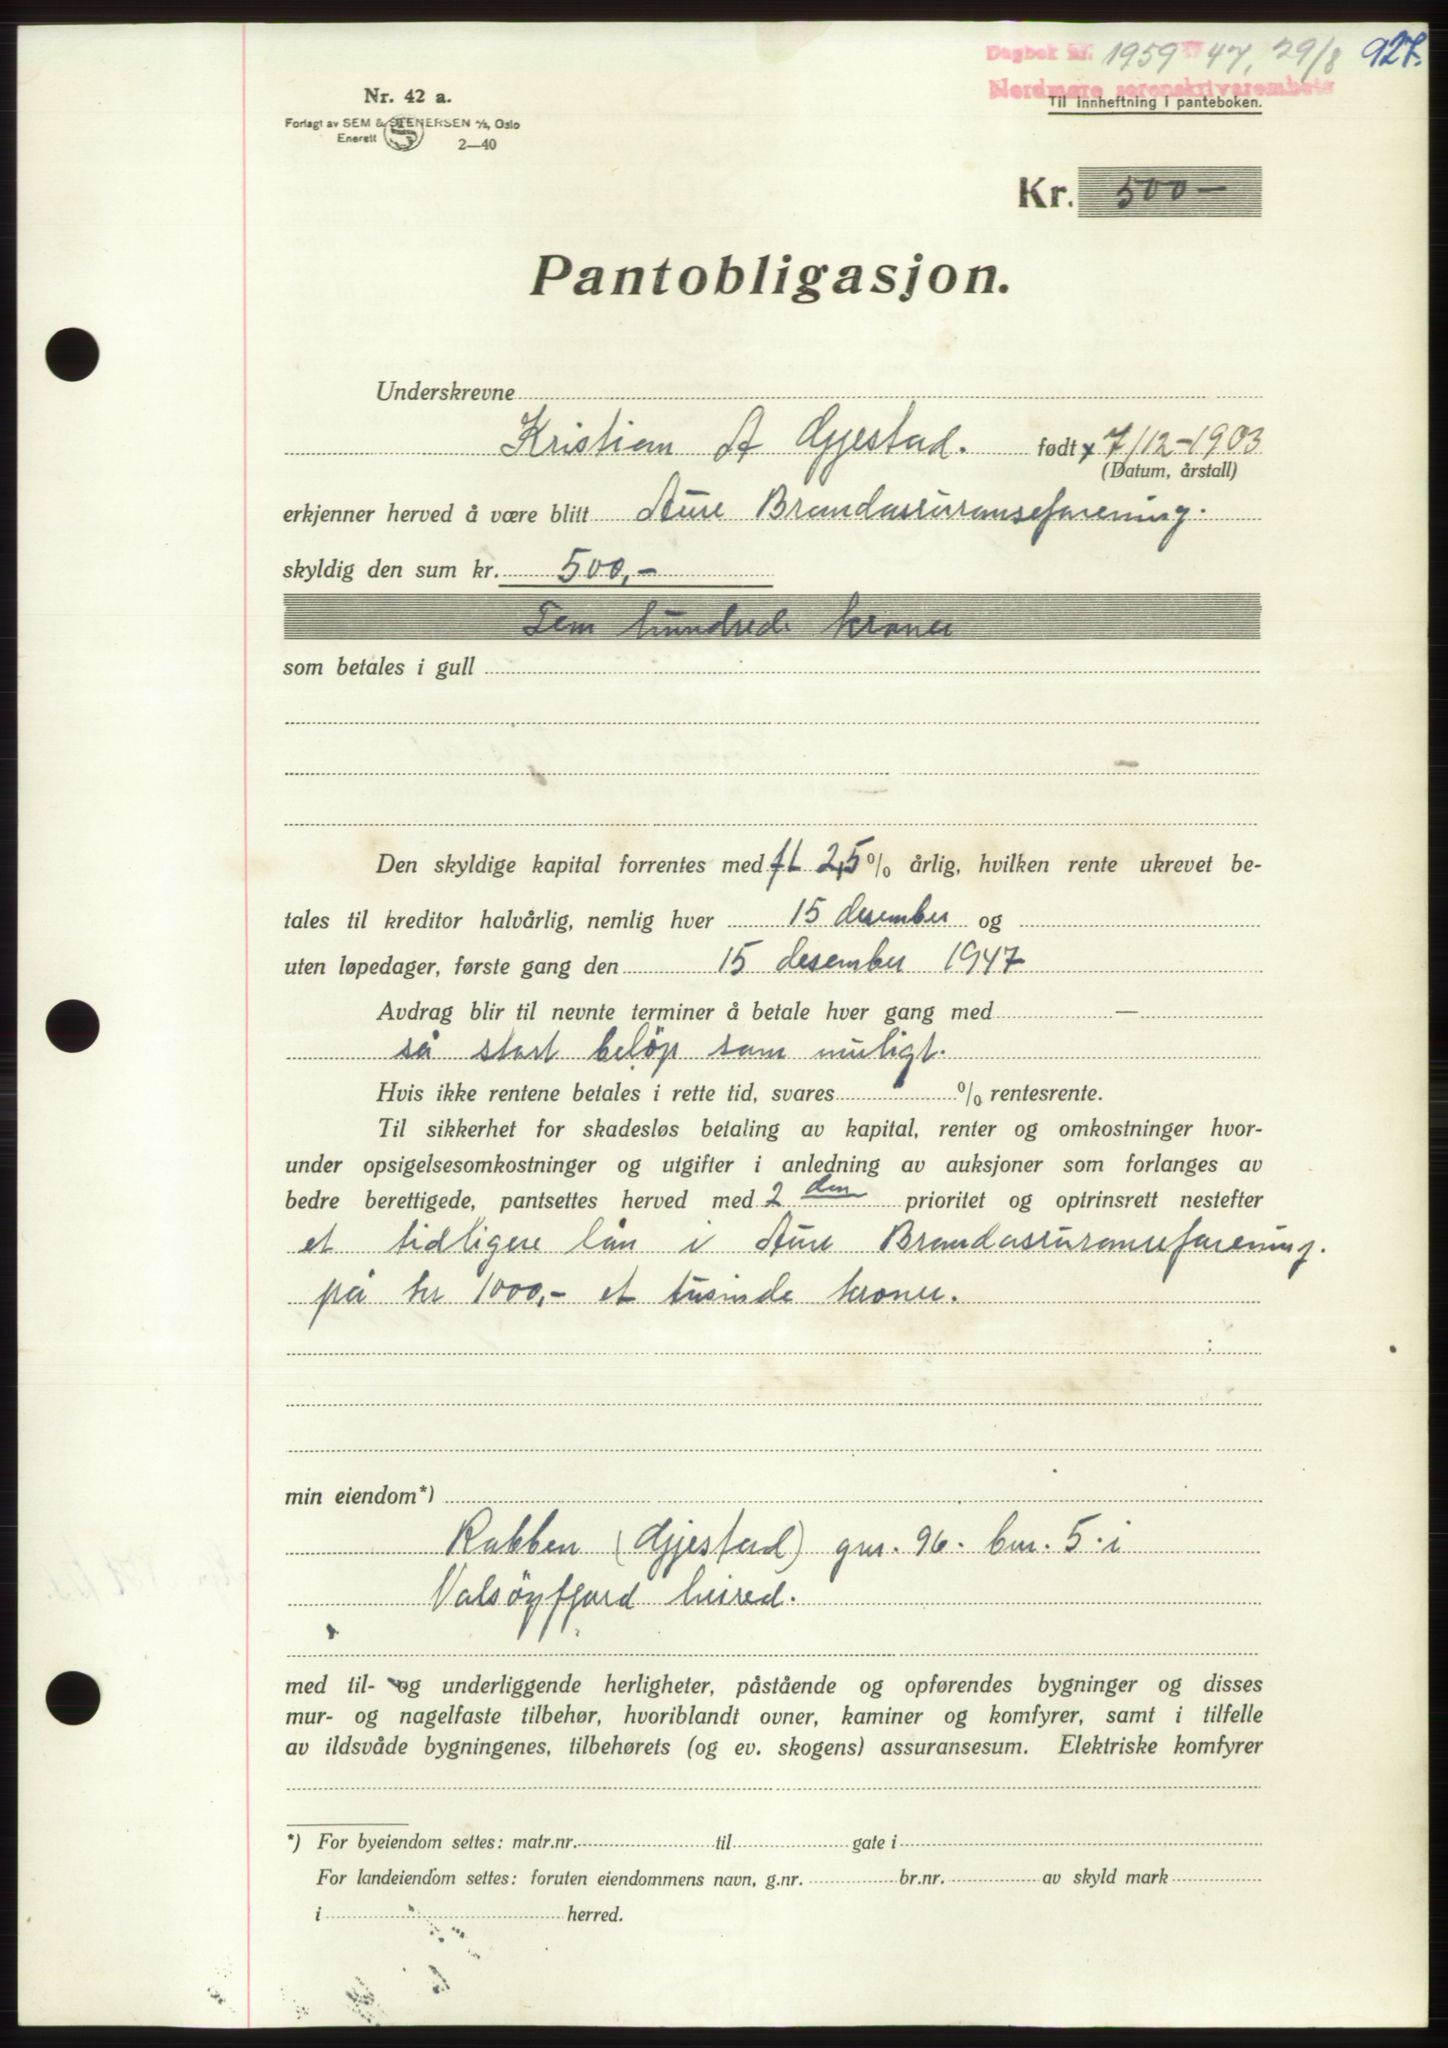 Dagbok nr. 1959 47, 29/8 927.
Nordmøre sorenskriverembete
Til innheftning i panteboken.
Nr. 42 a.
Forlagt av SEM & STENERSEN A/S, Oslo
Enerett
2—40
Kr. 500-
Pantobligasjon.
Underskrevne
Kristian A Gjestad. født 7/12-1903
(Datum, årstall)
erkjenner herved å være blitt Aure Brandassuranseforening.
skyldig den sum kr. 500,-
Fem hundrede kroner
som betales i gull
Den skyldige kapital forrentes med ft 2,5 % årlig, hvilken rente ukrevet be-
tales til kreditor halvårlig, nemlig hver 15 desember og
uten løpedager, første gang den 15 desember 1947
Avdrag blir til nevnte terminer å betale hver gang med —
så stort beløp som muligt.
Hvis ikke rentene betales i rette tid, svares % rentesrente.
Til sikkerhet for skadesløs betaling av kapital, renter og omkostninger hvor-
under opsigelsesomkostninger og utgifter i anledning av auksjoner som forlanges av
bedre berettigede, pantsettes herved med 2 den prioritet og optrinsrett nestefter
et tidligere lån i Aure Brandassuranseforening.
på kr 1000,- et tusinde kroner.
min eiendom*)
Rabben (Gjestad) gnr. 96. bnr. 5. i
Valsøyfjord herred.
med til- og underliggende herligheter, påstående og opførendes bygninger og disses
mur- og nagelfaste tilbehør, hvoriblandt ovner, kaminer og komfyrer, samt i tilfelle
av ildsvåde bygningenes, tilbehørets (og ev. skogens) assuransesum. Elektriske komfyrer
*) For byeiendom settes: matr.nr. til gate i
For landeiendom settes: foruten eiendommens navn, g.nr. br.nr. av skyld mark
i herred.